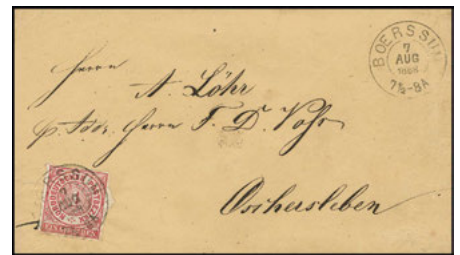 BOERSSUM
7
AUG
1868
7½-8A
Herrn
A. Löhr
p. Addr. Herrn F. D. Vohs
Oschersleben